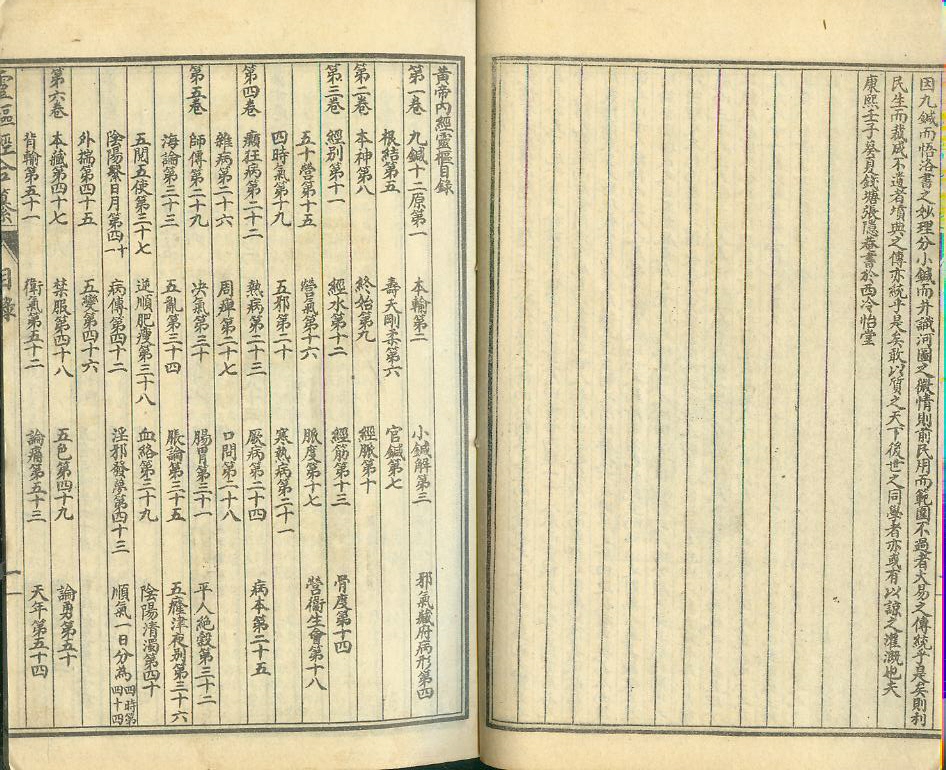 因九鍼而悟洛書之妙理分小鍼而并識河圖之微情則前民用而範圍不過者大易之傳統乎是矣則利
民生而裁成不遺者墳典之傳亦統乎是矣敢以質之天下後世之同學者亦或有以諒之灌溉也夫
康熙壬子葵夏錢塘張隱菴書於西泠怡堂
黃帝內經靈樞目錄
第一卷 九鍼十二原第一 本輸第二 小鍼解第三 邪氣藏府病形第四
根結第五 壽夭剛柔第六 官鍼第七
第二卷 本神第八 終始第九 經脈第十
第三卷 經別第十一 經水第十二 經筋第十三 骨度第十四
五十營第十五 營氣第十六 脈度第十七 營衞生會第十八
四時氣第十九 五邪第二十 寒熱病第二十一
第四卷 癲狂病第二十二 熱病第二十三 厥病第二十四 病本第二十五
雜病第二十六 周痺第二十七 口問第二十八
第五卷 師傳第二十九 決氣第三十 腸胃第三十一 平人絕穀第三十二
海論第三十三 五亂第三十四 脹論第三十五 五癃津液別第三十六
五閱五使第三十七 逆順肥瘦第三十八 血絡第三十九 陰陽清濁第四十
陰陽繫日月第四十一 病傳第四十二 淫邪發夢第四十三 順氣一日分為四時第四十四
外揣第四十五 五變第四十六
第六卷 本藏第四十七 禁服第四十八 五色第四十九 論勇第五十
背輸第五十一 衞氣第五十二 論痛第五十三 天年第五十四
靈樞經合纂 目錄 一